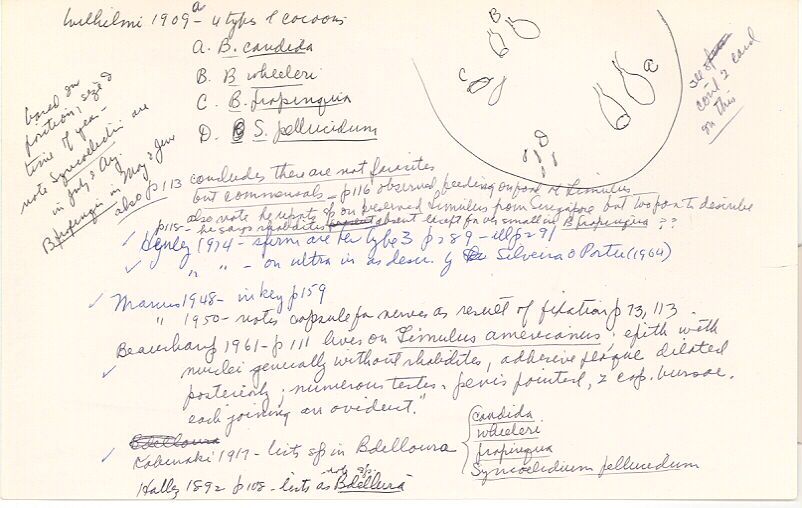 Wilhelmi 1909a - 4 types of cocoons
A. B. candida
B. B wheeleri
C. B. propinqua
D. S. pellucidum
B
C
A
D
cont 2 card
on this
based on
position, size &
time of year -
note Syncoelidium are
in July & Aug
B. propinqua in May & June
also p113 concludes these are not parasites
but commensals - p116 observed feeding on food of Limulus
also note he reports sp on preserved Limulus from Singapore but too poor to describe
p115 - he says rhabdites absent except for v. small in B propinqua ??
✓ Henley 1974 - sperm are her type 3 p289 - ill p291
✓ " " - on ultra in as descr. by Silveira & Porter (1964)
✓ Marcus 1948 - in key p159
" 1950 - notes capsule for nerves as result of fixation p 73, 113.
Beauchamp 1961 - p111 lives on Limulus americanus; epith with
✓ nuclei generally without rhabdites, adhesive plaque dilated
posteriorly; numerous testes. penis pointed, 2 cop. bursae.
each joining an oviduct."
Bdelloura
✓ Kaburaki 1917 - lists sp in Bdelloura
candida
wheeleri
propinqua
Syncoelidium pellucidum
Hallez 1892 p108 - lists as Bdellura